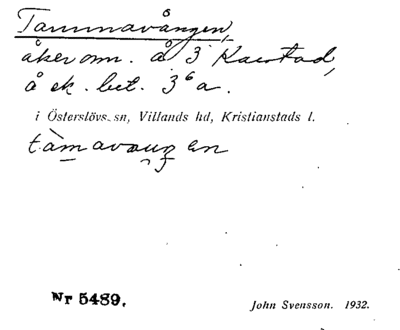 Tammavången,
åkerom. å 3 Karstad,
å ek. bet. 3⁶a.
i Österslövs sn, Villands hd, Kristianstads l.
Nr 5489.
John Svensson. 1932.